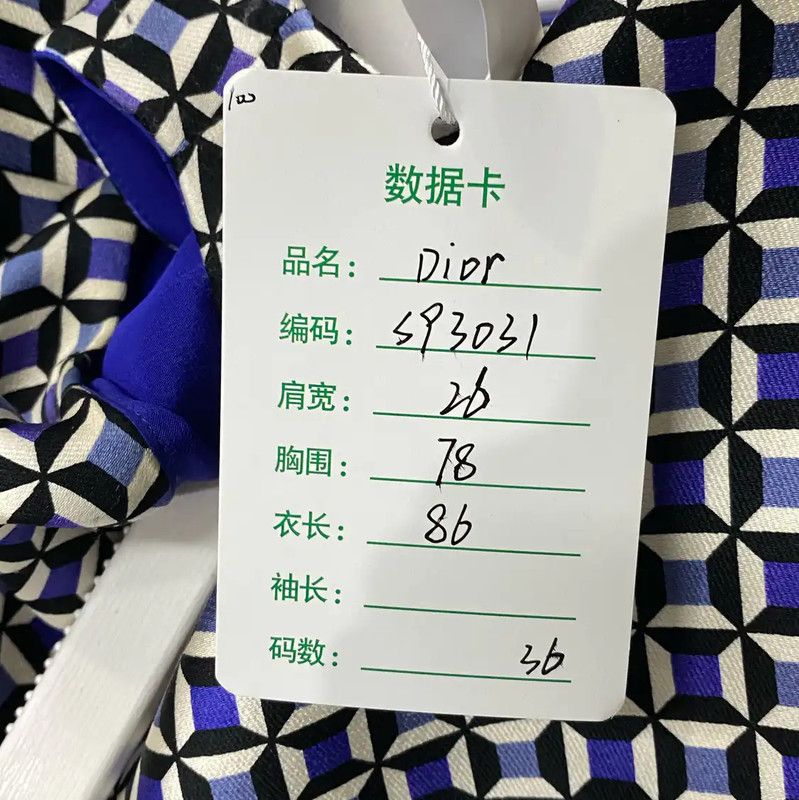 100
数据卡
品名: Dior
编码: S93031
肩宽: 26
胸围: 78
衣长: 86
袖长:
码数: 36